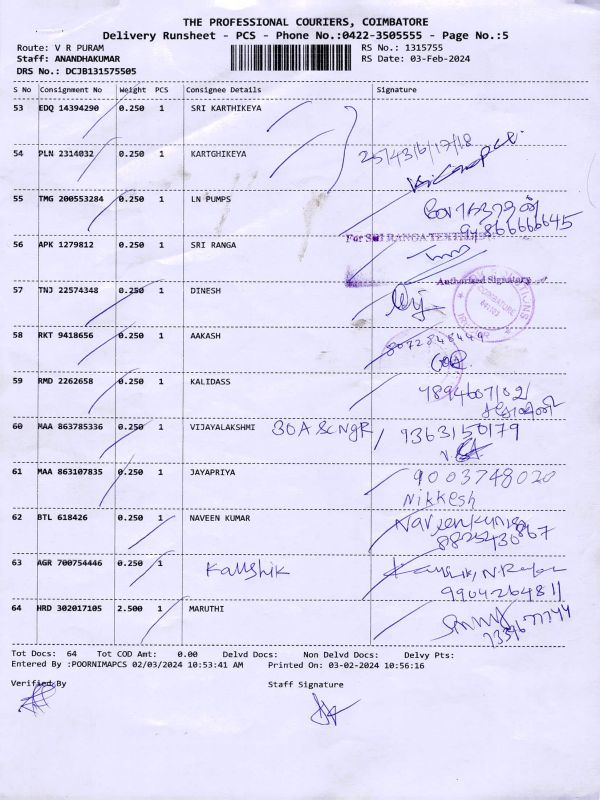 THE PROFESSIONAL COURIERS, COIMBATORE
Delivery Runsheet - PCS - Phone No.:0422-3505555 - Page No.:5
Route: V R PURAM RS No.: 1315755
Staff: ANANDHAKUMAR RS Date: 03-Feb-2024
DRS No.: DCJB131575505
S No Consignment No Weight PCS Consignee Details Signature
53 EDQ 14394290 0.250 1 SRI KARTHIKEYA
25/43/6/17/18
54 PLN 2314032 0.250 1 KARTGHIKEYA
55 TMG 200553284 0.250 1 LN PUMPS
For SRI RANGA TEXTILES
56 APK 1279812 0.250 1 SRI RANGA
Authorised Signatory
57 TNJ 22574348 0.250 1 DINESH
58 RKT 9418656 0.250 1 AAKASH
8072848449
59 RMD 2262658 0.250 1 KALIDASS
7894607102
60 MAA 863785336 0.250 1 VIJAYALAKSHMI 30A ScNgR, 9363150179
61 MAA 863107835 0.250 1 JAYAPRIYA 9003748020
Nikkesh
62 BTL 618426 0.250 1 NAVEEN KUMAR Naveenkumar
8825430867
63 AGR 700754446 0.250 1 Kaushik Kaushik, N.
9904264811
64 HRD 302017105 2.500 1 MARUTHI
Tot Docs: 64 Tot COD Amt: 0.00 Delvd Docs: Non Delvd Docs: Delvy Pts:
Entered By :POORNIMAPCS 02/03/2024 10:53:41 AM Printed On: 03-02-2024 10:56:16
Verified By Staff Signature